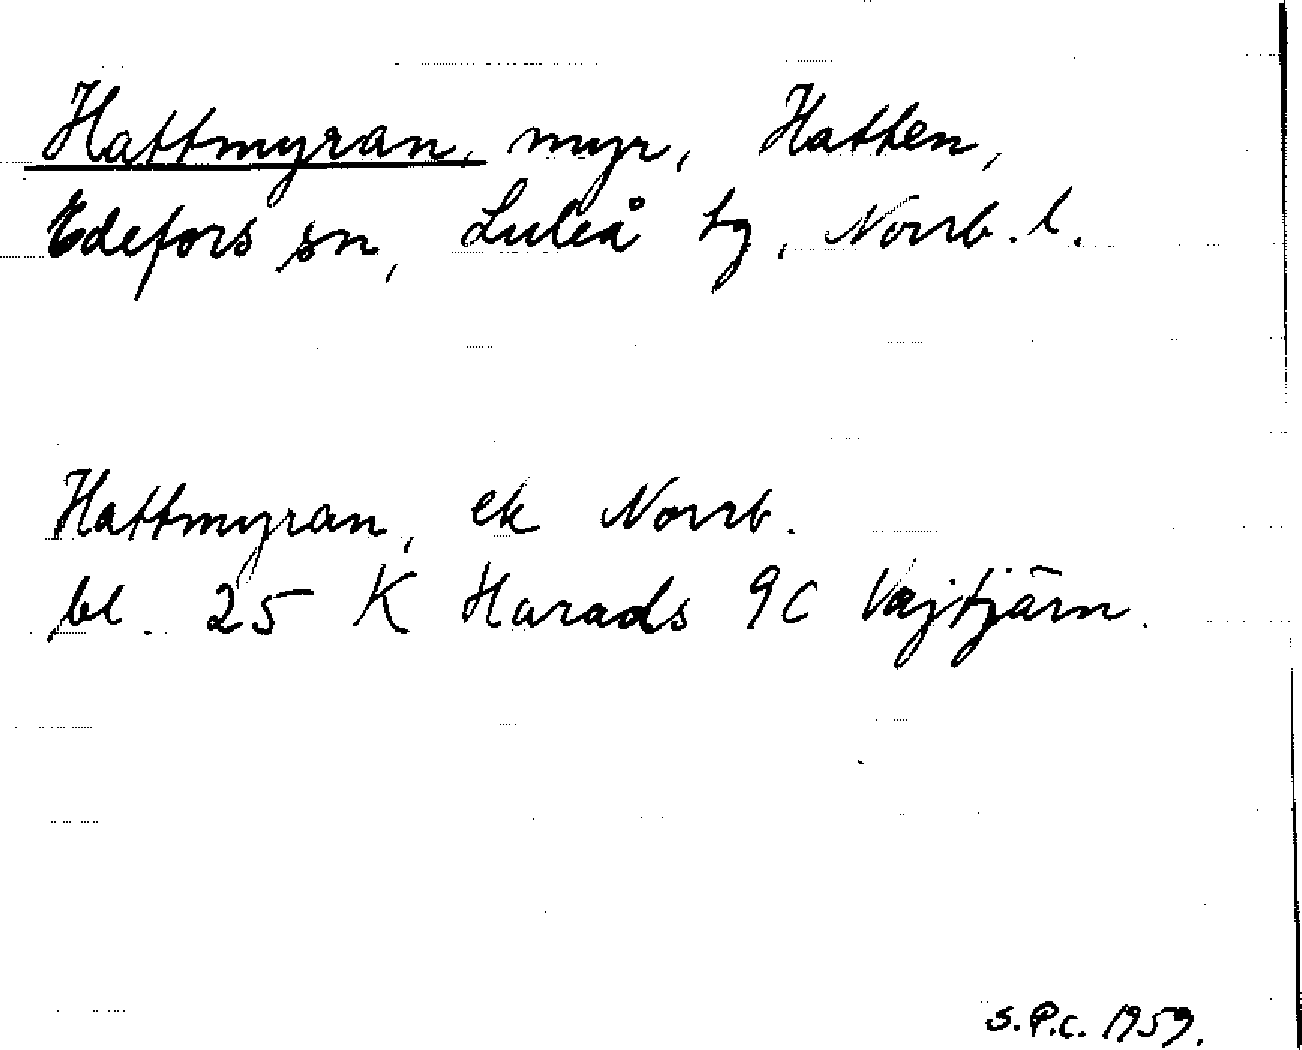 Hattmyran, myr, Hatten,
Edefors sn, Luleå tg, Norrb. l.
Hattmyran, ek Norrb.
bl. 25 K Harads 9c Vajtjärn.
S.P.C. 1959.